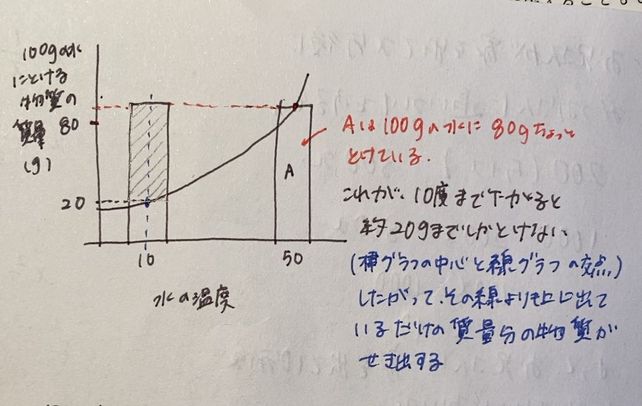 100gの水
にとける
物質の
質量
(g)
80
20
10
50
水の温度
A
Aは100gの水に80gちょっと
とけている.
これが、10度まで下がると
約20gまでしかとけない
(棒グラフの中心と線グラフの交点)
したがって、その線よりも上に出て
いるだけの質量分の物質が
せき出する